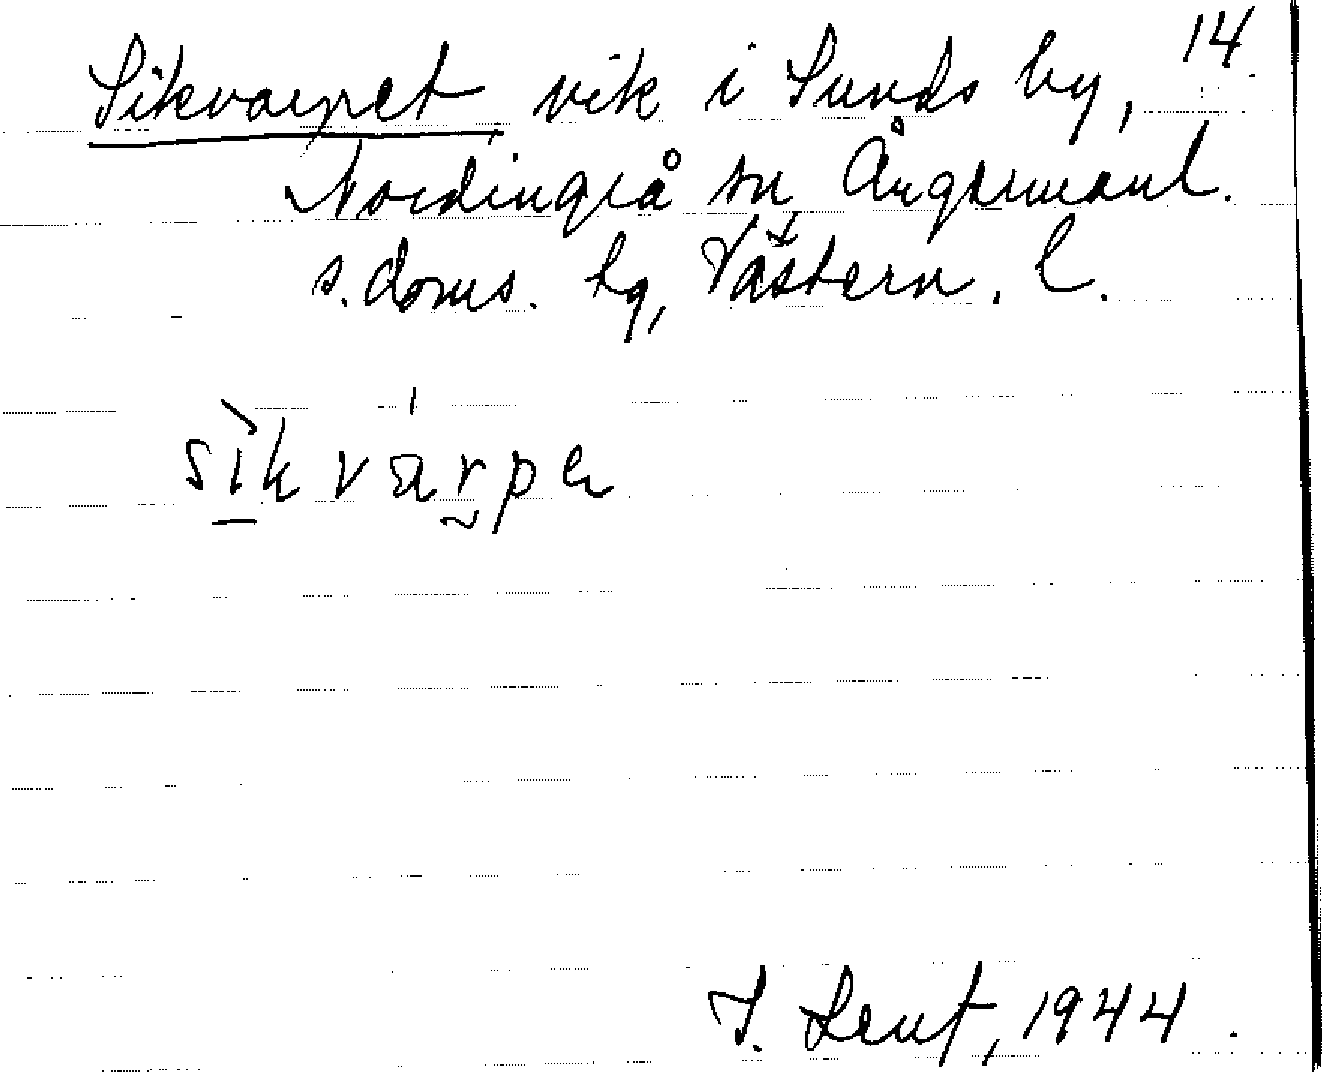 14.
Sikvarpet, vik i Sunds by,
Nordingrå sn Ångermanl.
s. doms. hg, Västern. l.
sìkvárpe
1944.